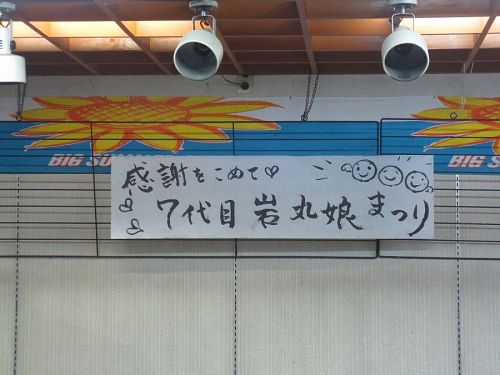 BIG SU
BIG S
感謝をこめて♡
7代目岩丸娘まつり